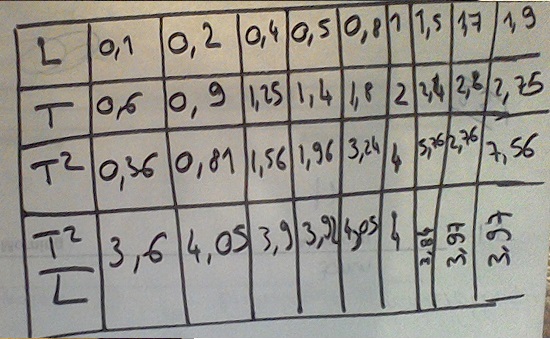 L 0,1 0,2 0,4 0,5 0,8 1 1,5 1,7 1,9
T 0,6 0,9 1,25 1,4 1,8 2 2,4 2,6 2,75
T² 0,36 0,81 1,56 1,96 3,24 4 5,76 2,76 7,56
T²/L 3,6 4,05 3,9 3,92 4,05 4 3,84 3,97 3,97